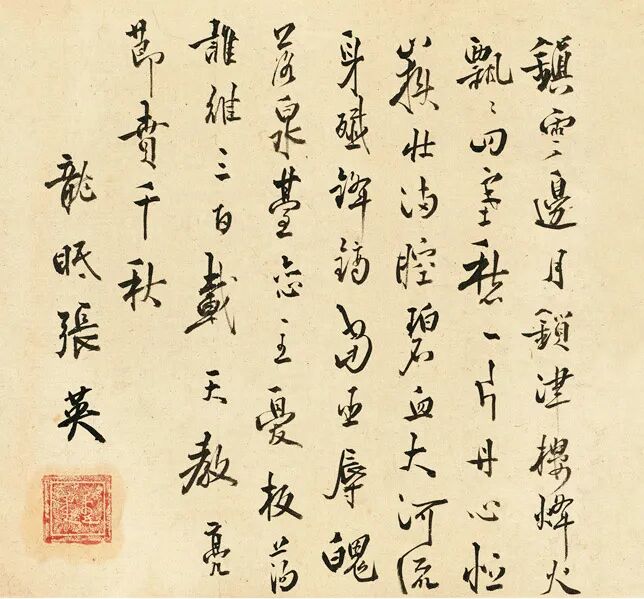 鎮雲邊月鎖津樓烽火
飄〻四塞愁一片丹心恒
嶽壯滿腔碧血大河流
身殲鋒鏑臣辱魄
落泉臺戀主憂板蕩
誰維三百載天教亮
節賁千秋
龍眠張英